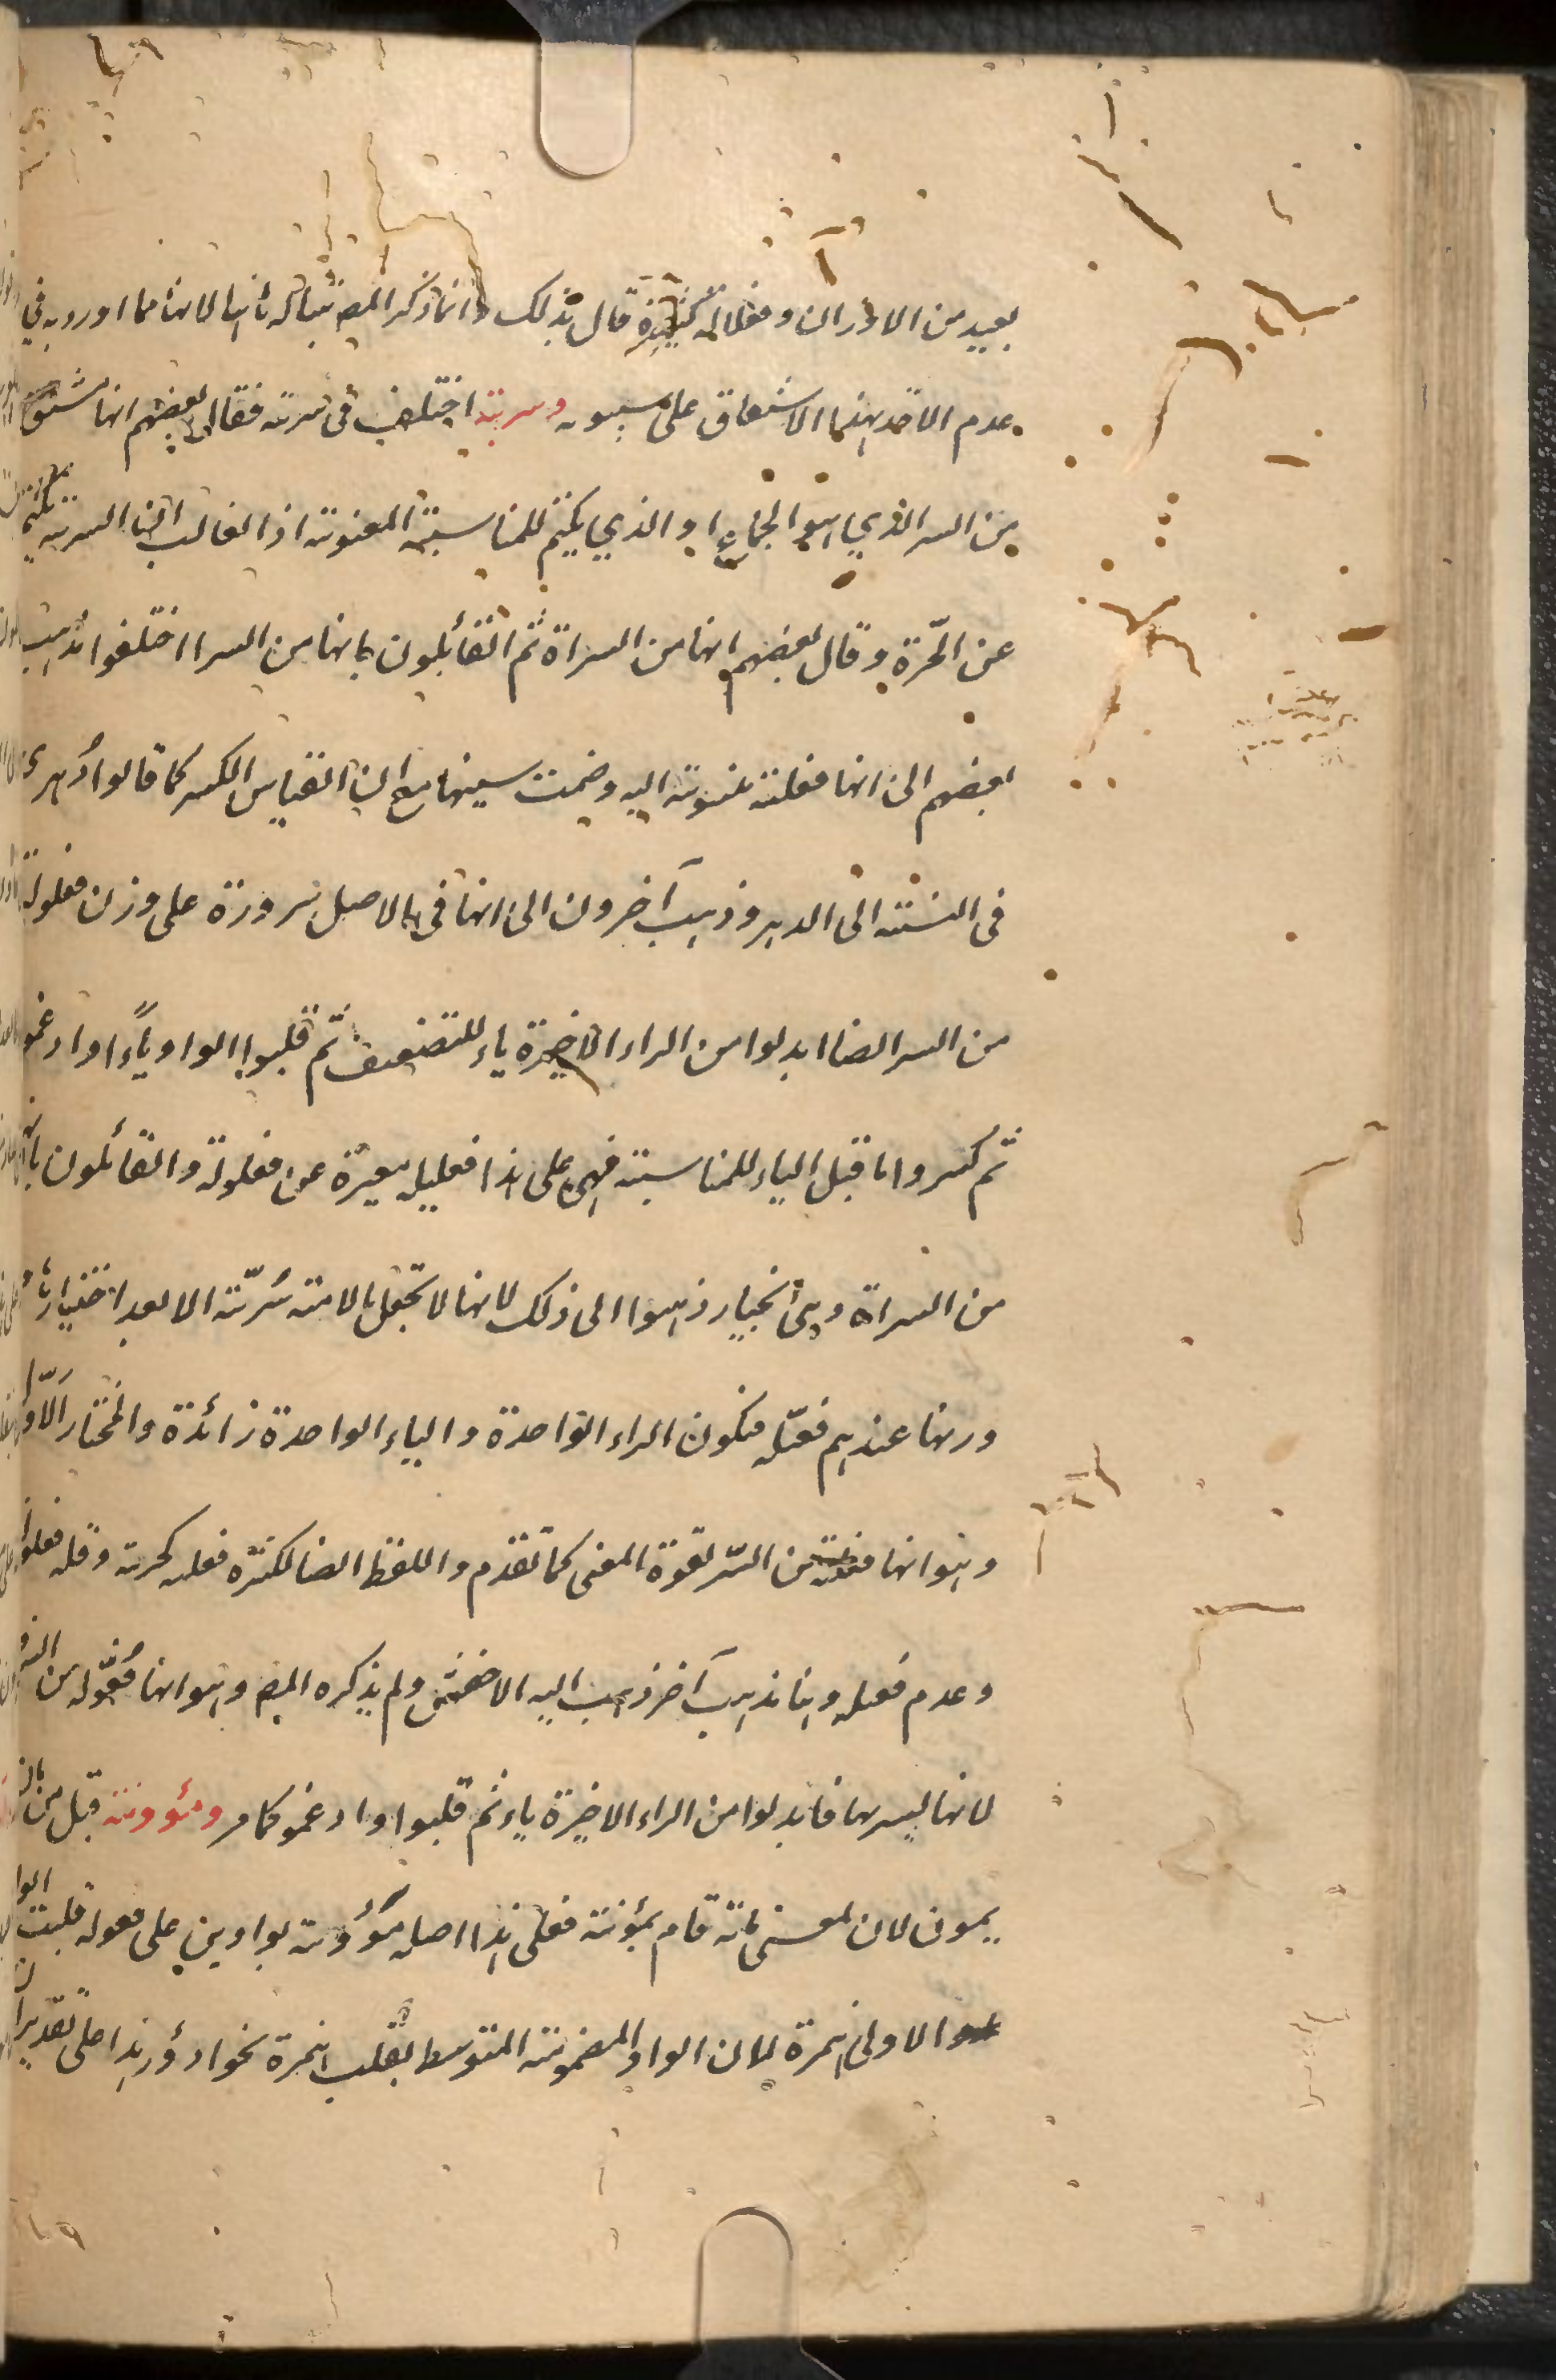 بعيد من الاوزان وفعلالة كثيرة قال بذلك وانما ذكر المص تنباله ثانيا لانه مما اورد به في
عدم الاخذ بهذا الاشتقاق على سيبويه وسرية اختلف في سرية فقال بعضهم انها مشتق
من السر الذي هو الجماع او الذي يكتم للمناسبة المعنوية اذ الغالب ان السرية تكتم
عن الحرة وقال بعضهم انها من السراة ثم القائلون بانها من السر اختلفوا فذهب
بعضهم الى انها فعلية منسوبة اليه وضمت سينها مع ان القياس الكسر كما قالوا دُهري
في النسبة الى الدهر وذهب آخرون الى انها في الاصل سرورة على وزن فعلولة
من السر ايضا ابدلوا من الراء الاخيرة ياء للتضعيف ثم قلبوا الواو ياءً وادغموا
ثم كسروا ما قبل الياء للمناسبة فهي على هذا فعليلة مغيرة عن فعلولة والقائلون بانها
من السراة وهي الخيار ذهبوا الى ذلك لانها لا تجعل الامة سُرّية الا بعد اختيارها
وزنها عندهم فعيلة فيكون الراء الواحدة والياء الواحدة زائدة والمختار الاوّل
وهو انها فعلية من السّر لقوة المعنى كما تقدم واللفظ ايضا لكثرة فعلية كحرية وقلة فعلولة
وعدم فعيلة وهنا مذهب آخر ذهب اليه الاخفش ولم يذكره المص وهو انها فُعّولة من السرور
لانها يسر بها فابدلوا من الراء الاخيرة ياء ثم قلبوا وادغموا كما مر ومؤونة قيل من مان
يمون لان معنى مانه قام بمؤنته فعلى هذا اصله موُوُنة بواوين على فعولة قلبت الواو
الاولى همزة لان الواو المضمومة المتوسطة تقلب همزة نحو ادؤر هذا على تقدير ان